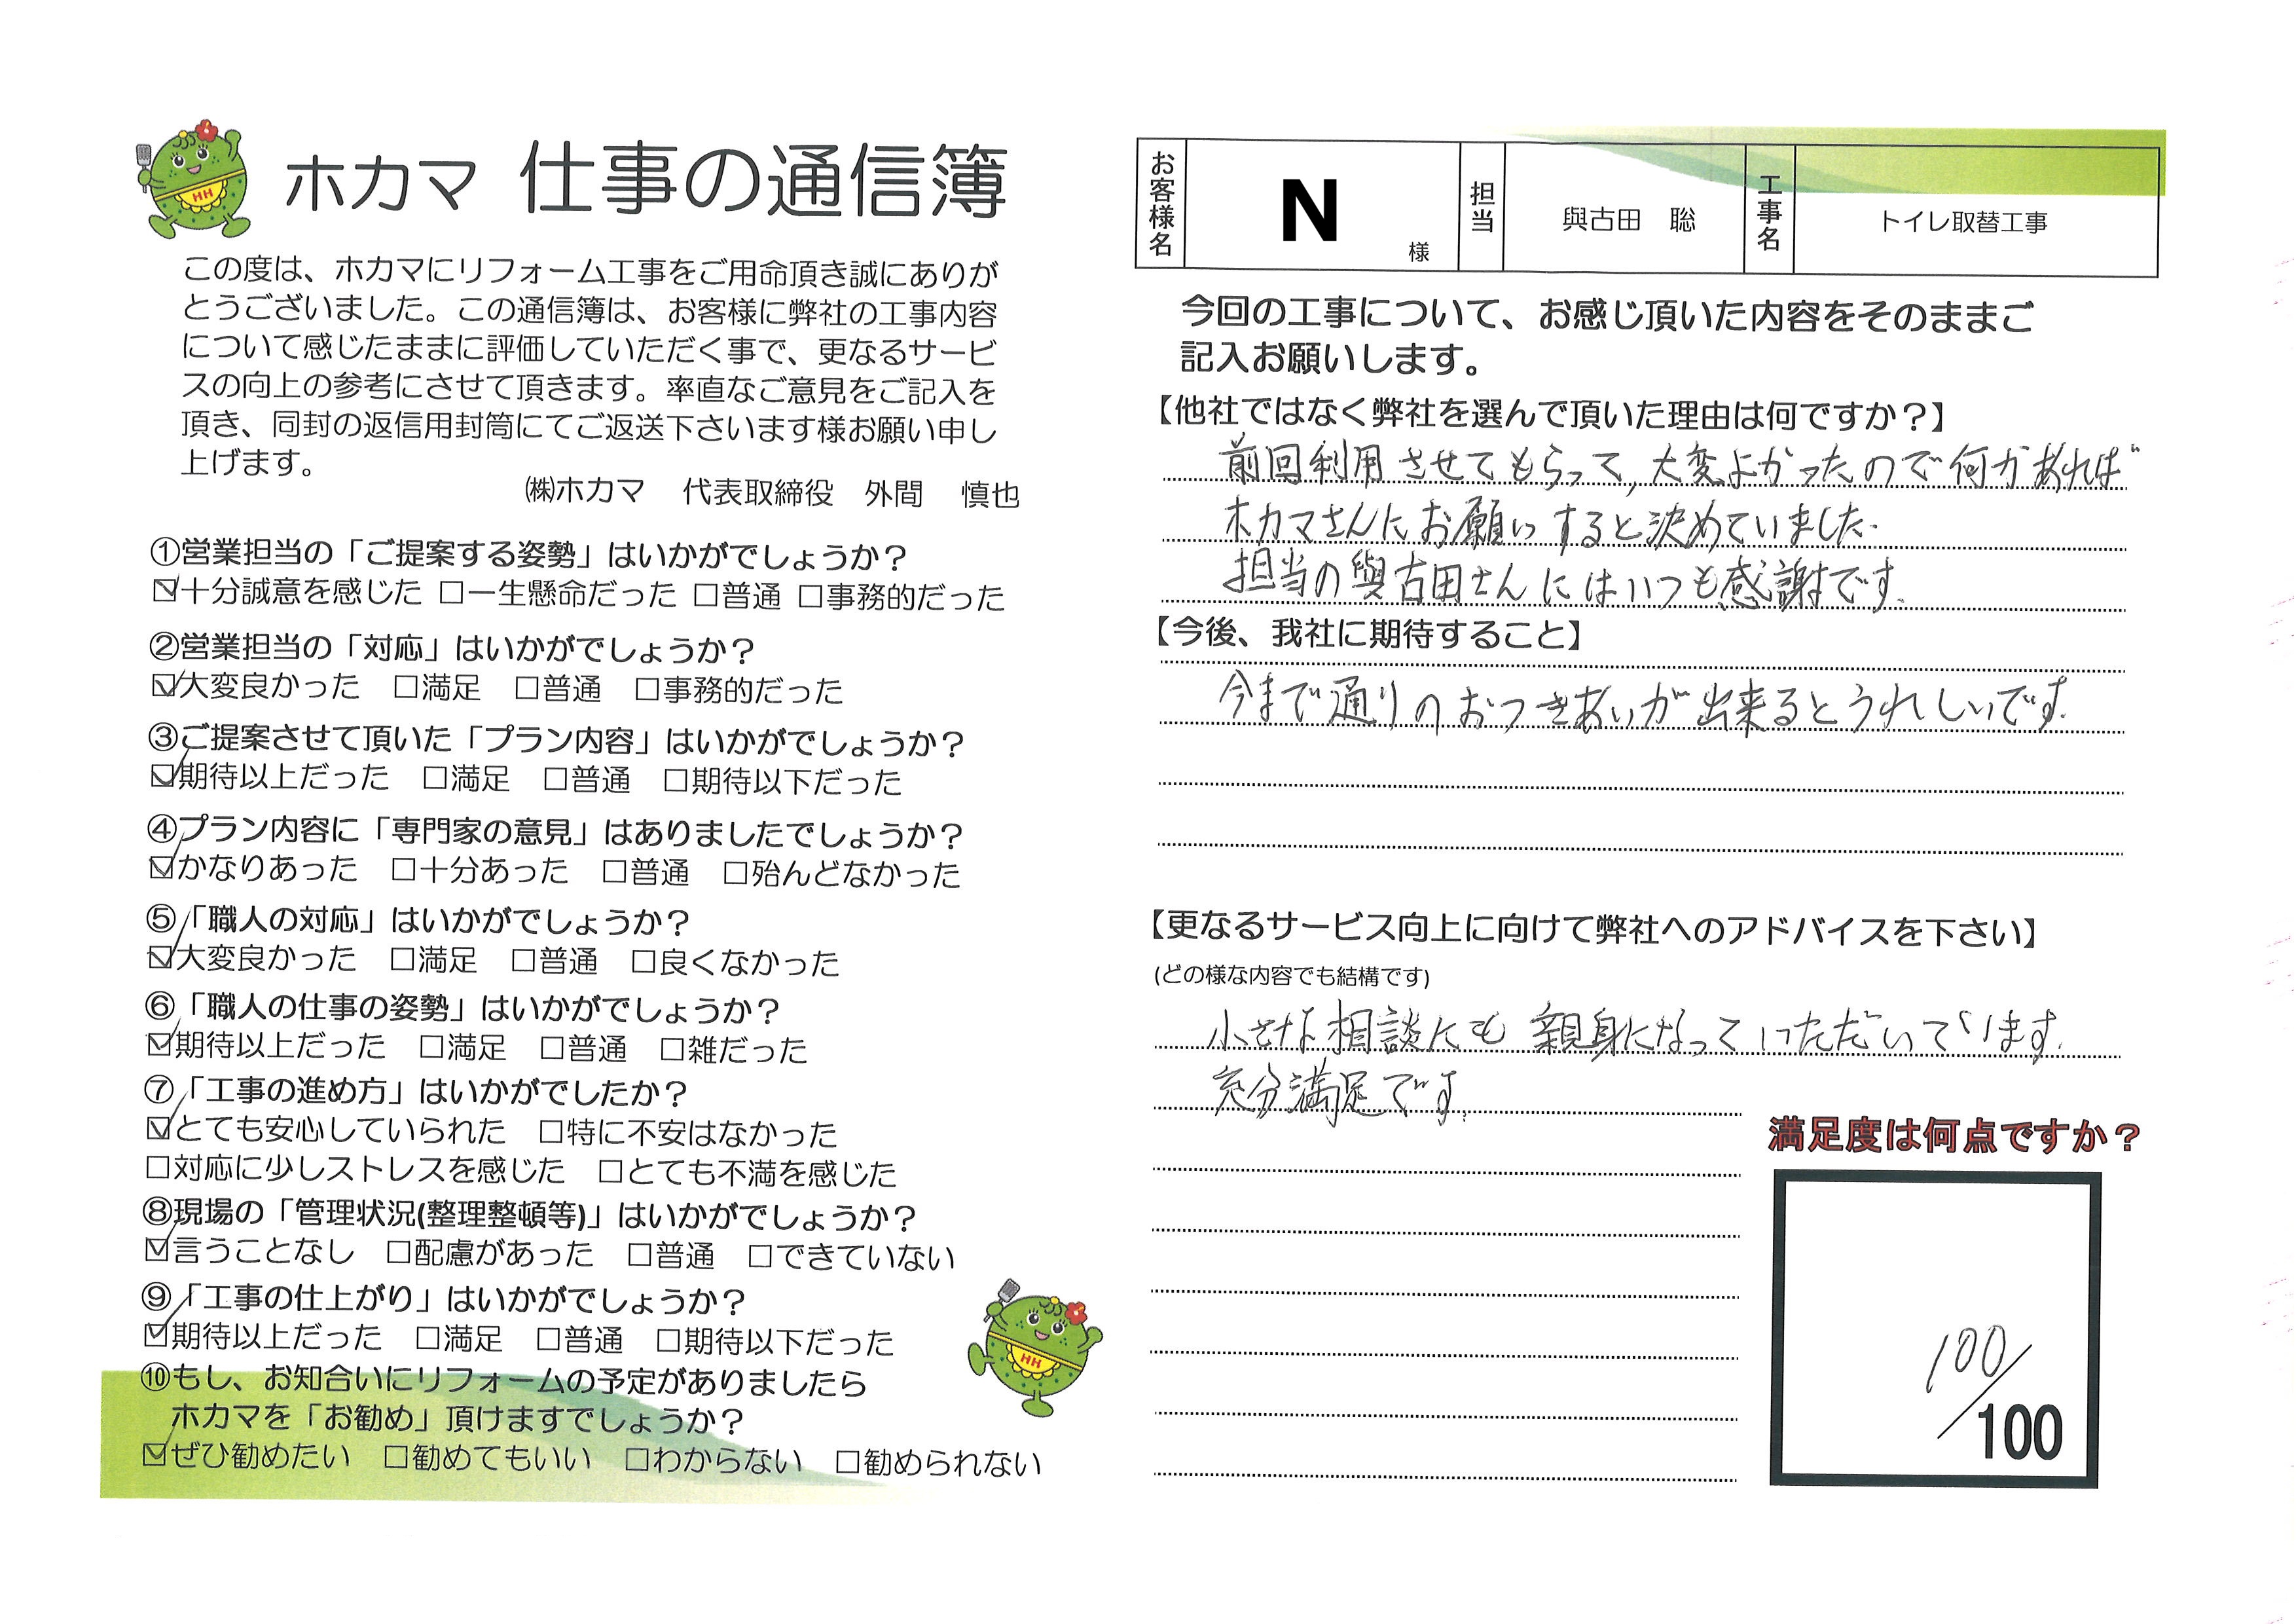 ホカマ 仕事の通信簿
この度は、ホカマにリフォーム工事をご用命頂き誠にありが
とうございました。この通信簿は、お客様に弊社の工事内容
について感じたままに評価していただく事で、更なるサービ
スの向上の参考にさせて頂きます。率直なご意見をご記入を
頂き、同封の返信用封筒にてご返送下さいます様お願い申し
上げます。
㈱ホカマ 代表取締役 外間 慎也
①営業担当の「ご提案する姿勢」はいかがでしょうか？
☑十分誠意を感じた □一生懸命だった □普通 □事務的だった
②営業担当の「対応」はいかがでしょうか？
☑大変良かった □満足 □普通 □事務的だった
③ご提案させて頂いた「プラン内容」はいかがでしょうか？
☑期待以上だった □満足 □普通 □期待以下だった
④プラン内容に「専門家の意見」はありましたでしょうか？
☑かなりあった □十分あった □普通 □殆んどなかった
⑤「職人の対応」はいかがでしょうか？
☑大変良かった □満足 □普通 □良くなかった
⑥「職人の仕事の姿勢」はいかがでしょうか？
☑期待以上だった □満足 □普通 □雑だった
⑦「工事の進め方」はいかがでしたか？
☑とても安心していられた □特に不安はなかった
□対応に少しストレスを感じた □とても不満を感じた
⑧現場の「管理状況(整理整頓等)」はいかがでしょうか？
☑言うことなし □配慮があった □普通 □できていない
⑨「工事の仕上がり」はいかがでしょうか？
☑期待以上だった □満足 □普通 □期待以下だった
⑩もし、お知合いにリフォームの予定がありましたら
ホカマを「お勧め」頂けますでしょうか？
☑ぜひ勧めたい □勧めてもいい □わからない □勧められない
HH
HH
お客様名 N 様 担当 與古田 聡 工事名 トイレ取替工事
今回の工事について、お感じ頂いた内容をそのままご
記入お願いします。
【他社ではなく弊社を選んで頂いた理由は何ですか？】
前回利用させてもらって、大変よかったので何かあれば
ホカマさんにお願いすると決めていました。
担当の與古田さんにはいつも感謝です。
【今後、我社に期待すること】
今まで通りのおつきあいが出来るとうれしいです。
【更なるサービス向上に向けて弊社へのアドバイスを下さい】
(どの様な内容でも結構です)
小さな相談にも親身になっていただいています。
充分満足です。
満足度は何点ですか？
100/100